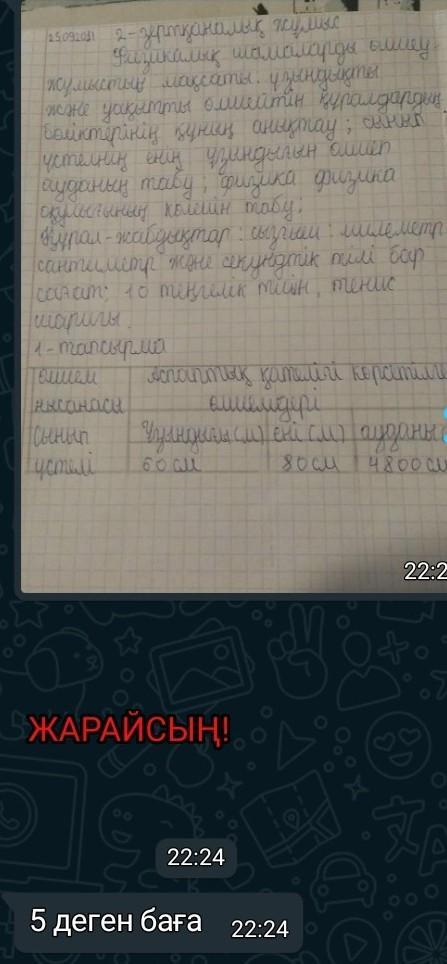 25.09.2021 2-зертқаналық жұмыс
Физикалық шамаларды өлшеу
жұмыстың мақсаты: ұзындықты
және уақытты өлшейтін құралдардың
бөліктерінің құнын анықтау; сынып
үстелнің енің ұзындығын өлшеп
ауданың табу; физика физика
оқулығының көлемін табу;
Құрал-жабдықтар: сызғыш: милеметр
сантиметр және секундтік тілі бар
сағат; 10 теңгелек тиін, тенис
шариғы.
1-тапсырма
өлшем Аспаптық қателігі көрсетілге
нысанасы өлшемдері
Сынып Ұзындығы(см) ені(см) ауданы(
үстелі 60 см 80см 4800см
22:2
ЖАРАЙСЫҢ!
22:24
5 деген баға 22:24